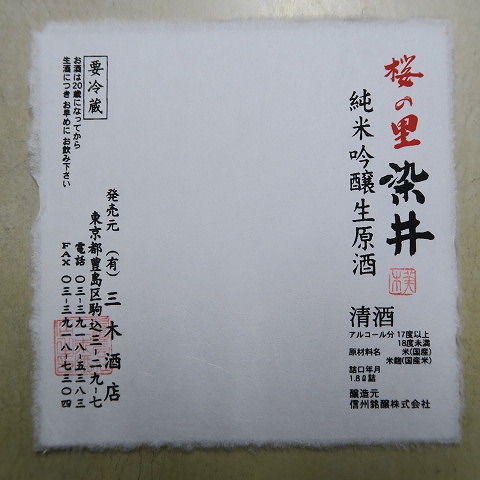 桜の里
染井
純米吟醸生原酒
清酒
アルコール分 17度以上
18度未満
原材料名 米(国産)
米麹(国産米)
詰口年月
1.8ℓ詰
醸造元
信州銘醸株式会社
発売元 (有)三木酒店
東京都豊島区駒込三ー二九ー七
電話 〇三ー三九一八ー五三八三
FAX 〇三ー三九一八ー七三〇四
要冷蔵
お酒は20歳になってから
生酒につき お早めに お飲み下さい